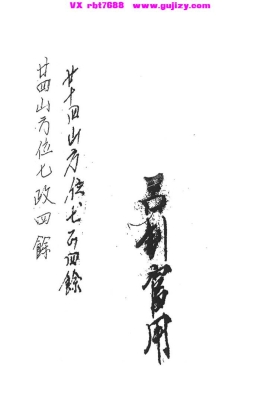 VX rbt7688 www.gujizy.com
呂制官用
廿四山方位七政四餘
廿四山方位七政四餘